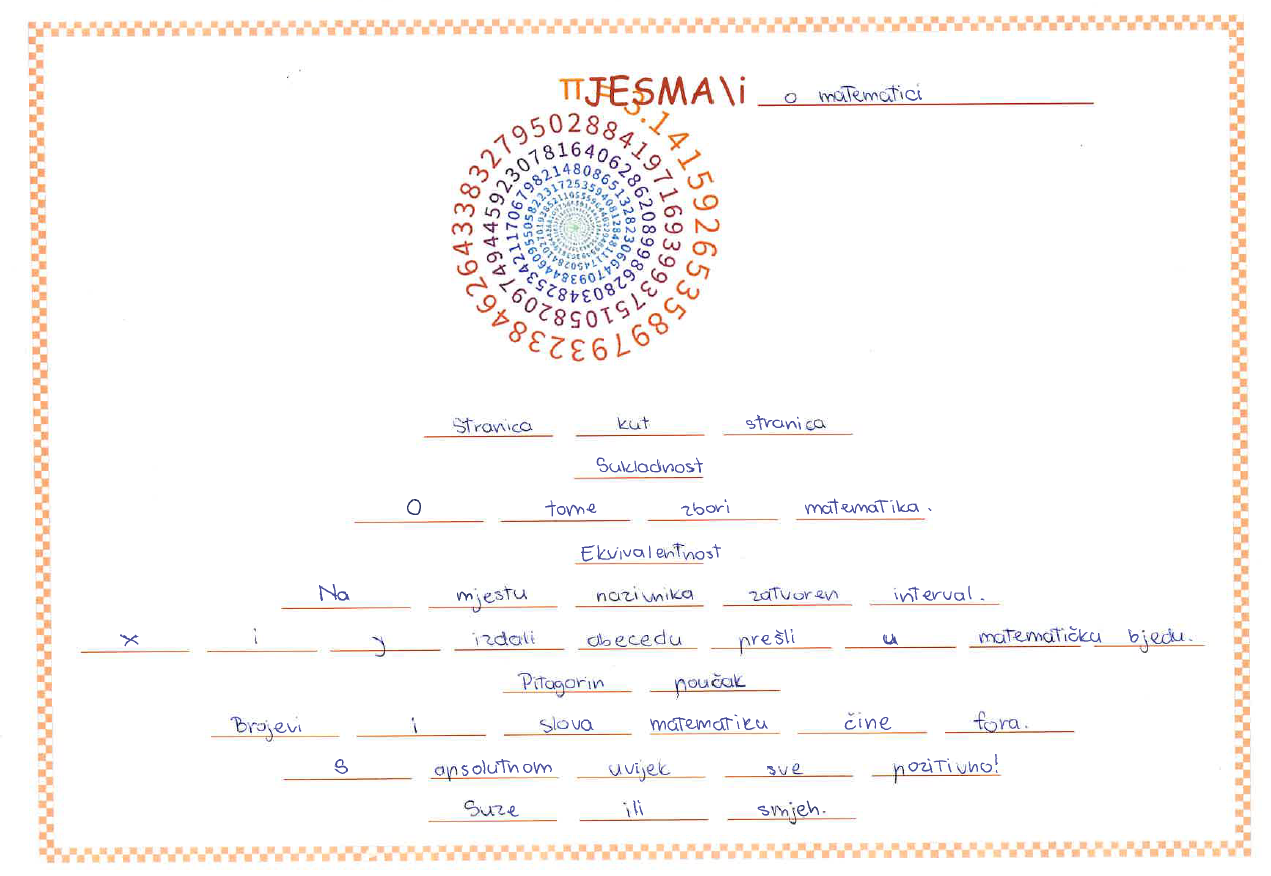 πJESMA\i o matematici
3.14159265358979323846264338327950288419716939937510582097494459230781640628620899862803482534211706798214808651328230664709384460955058223172535940812848111745028410270193852110555964462294895493038196
Stranica kut stranica
Sukladnost
O tome zbori matematika.
Ekvivalentnost
Na mjestu nazivnika zatvoren interval.
x i y izdali abecedu prešli u matematičku bjedu.
Pitagorin poučak
Brojevi i slova matematiku čine fora.
S apsolutnom uvijek sve pozitivno!
Suze ili smjeh.